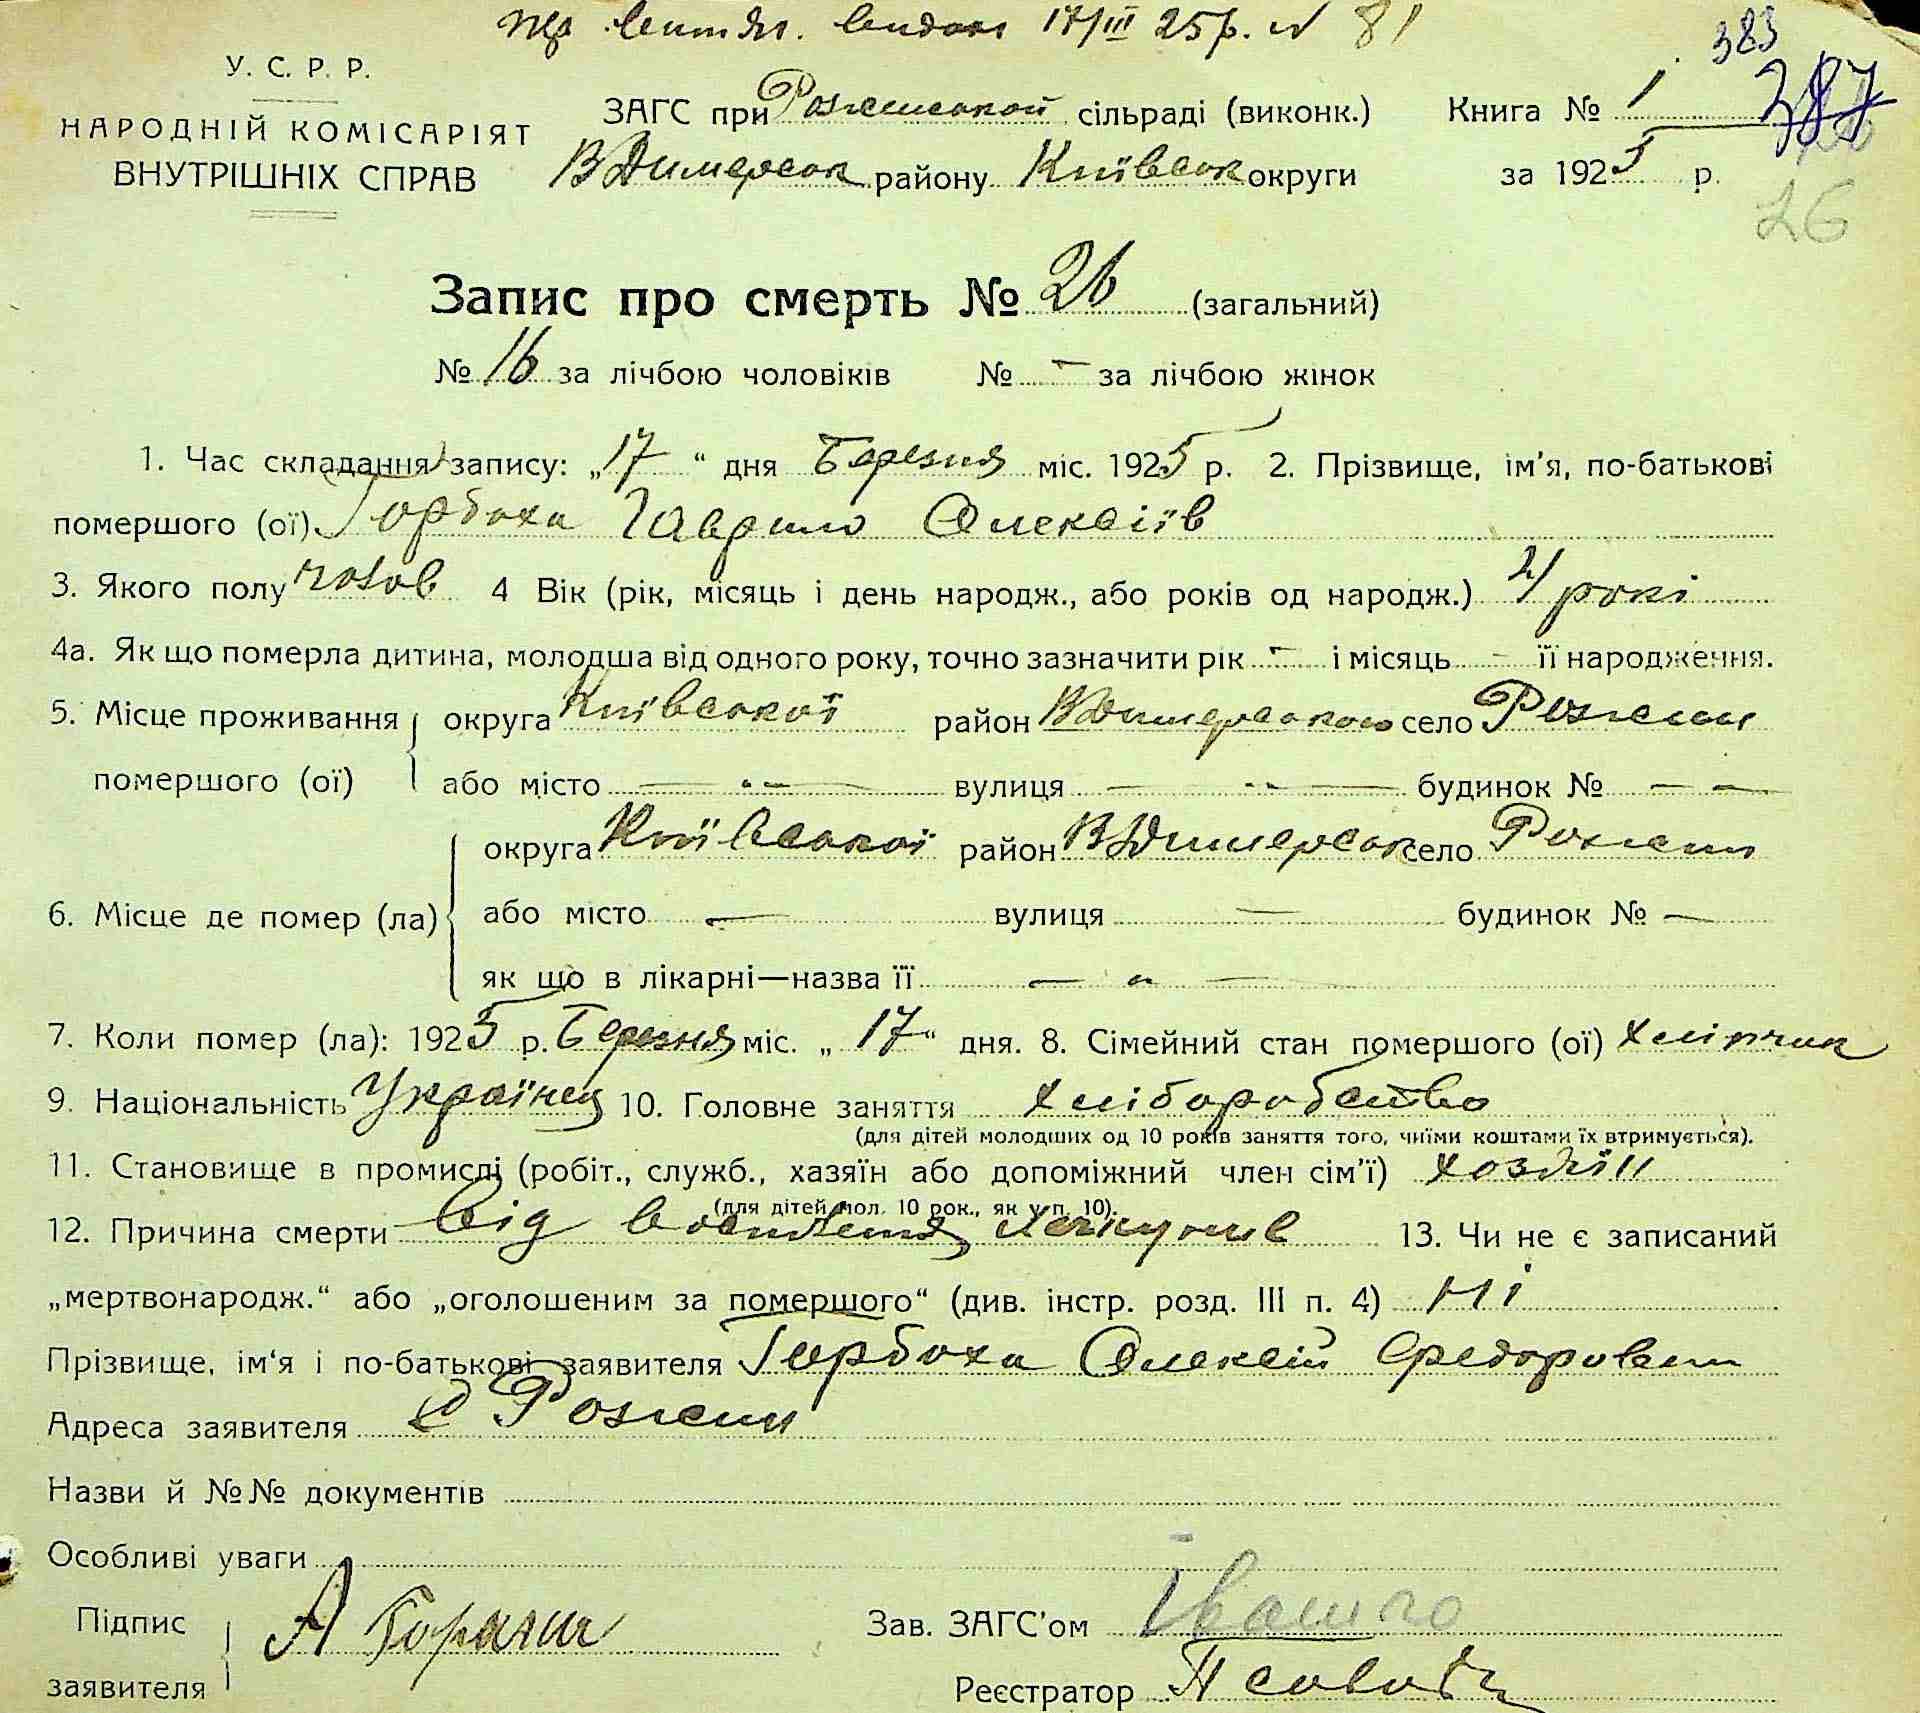 17/III 25 р. N 81
383
У. С. Р. Р.
НАРОДНІЙ КОМІСАРІЯТ
ВНУТРІШНІХ СПРАВ
ЗАГС при Рожнівской сільраді (виконк.) Книга № 1 387
ВДимерськ району Київськ округи за 1925 р.
26
Запис про смерть № 26 (загальний)
№ 16 за лічбою чоловіків № – за лічбою жінок
1. Час складання запису: „17“ дня Березня міс. 1925 р. 2. Прізвище, ім'я, по-батькові
помершого (ої) Горбоха Гаврило Олексіїв
3. Якого полу чолов 4 Вік (рік, місяць і день народж., або років од народж.) 4 рокі
4а. Як що померла дитина, молодша від одного року, точно зазначити рік – і місяць – її народження.
5. Місце проживання округа Київської район ВДимерського село Рожни
помершого (ої) або місто — „ — вулиця — „ — будинок № — —
округа Київської район ВДимерськ село Рожни
6. Місце де помер (ла) або місто — вулиця — будинок № —
як що в лікарні—назва її — „ —
7. Коли помер (ла): 1925 р. Березня міс. „17“ дня. 8. Сімейний стан помершого (ої) хлопчик
9. Національність Українец 10. Головне заняття хліборобство
(для дітей молодших од 10 років заняття того, чиїми коштами їх втримується).
11. Становище в промислі (робіт., служб., хазяїн або допоміжний член сім'ї) хозяїн
(для дітей мол. 10 рок., як у п. 10).
12. Причина смерти від 13. Чи не є записаний
„мертвонародж.“ або „оголошеним за помершого“ (див. інстр. розд. III п. 4) Ні
Прізвище, ім'я і по-батькові заявителя Горбоха Олексій Федорович
Адреса заявителя с Рожни
Назви й №№ документів
Особливі уваги
Підпис А Зав. ЗАГС'ом
заявителя Реєстратор